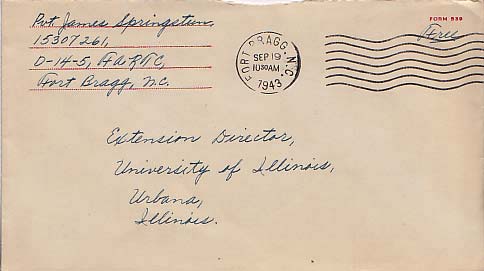 Pvt James Springsteen,
15307261,
D-14-5, FARTC,
Fort Bragg, N.C.
FORT BRAGG. N.C.
SEP 19
1030AM
1943
FORM 539
Free
Extension Director,
University of Illinois,
Urbana,
Illinois.